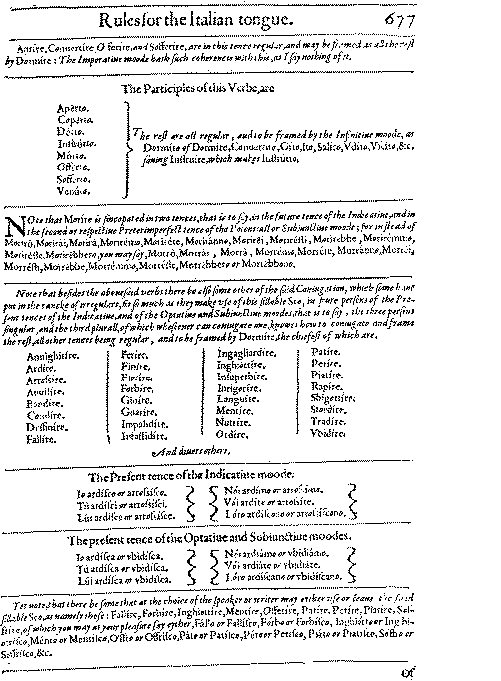 Rules for the Italian tongue. 677
Aprire, Convertire, Offerire, and Sofferire, are in this tence regular, and may be formed as all the rest
by Dormire: The Imperatiue moode hath such coherence with this, as I say nothing of it.
The Participles of this Verbe, are
Apérto.
Copérto.
Détto.
Instrútto.
Mórto.
Offérto.
Sofférto.
Venúto.
The rest are all regular, and to be framed by the Infinitiue moode, as
Dormito of Dormire, Conuertito, Gito, Ito, Salito, Vdito, Vscito, &c.
sauing Instruire, which makes Instrútto.
NOte that Morire is sincopated in two tences, that is to say, in the future tence of the Indicatiue, and in
the second or respectiue Preterimperfect tence of the Potentiall or Subiunctiue moode; for in stead of
Morirò, Morirái, Morirà, Morirémo, Moriréte, Moriránno, Moriréi, Morirésti, Morirébbe, Morirémmo,
Moriréste, Morirébbero, you may say, Morrò, Morrái, Morrà, Morrémo, Morréte, Morránno, Morréi,
Morrésti, Morrébbe, Morrémmo, Morréste, Morrébbero or Morrébbono.
Note that besides the abouesaid verbs there be also some other of the said Coniugation, which some haue
put in the rancke of irregulers, for so much as they make vse of this sillable Sco, in foure persons of the Pre-
sent tences of the Indicatiue, and of the Optatiue and Subiunctiue moodes, that is to say, the three persons
singular, and the third plurall, of which whosoeuer can coniugate one, knowes how to coniugate and frame
the rest, all other tences being regular, and to be framed by Dormire, the chiefest of which, are.
Annighitire. Ferire. Ingagliardire. Patire.
Ardire. Finire. Inghiottire. Perire.
Arrossire. Fiorire. Insuperbire. Piatire.
Auuilire. Forbire. Irrigorire. Rapire.
Bandire. Gioire. Languire. Sbigottire.
Condire. Guarire. Mentire. Stordire.
Definire. Impalidire. Nutrire. Tradire.
Fallire. Infastidire. Ordire. Vbidire.
And diuers others.
The Present tence of the Indicatiue moode.
Io ardisco or arrossisco. Nói ardímo or arrossímo.
Tù ardísci or arrossísci. Vói ardíte or arrossíte.
Lúi ardísce or arrossísce. Lóro ardíscono or arrossíscono.
The present tence of the Optatiue and Subiunctiue moodes.
Io ardísca or vbidísca. Nói ardiámo or vbidiámo.
Tù ardísca or vbidísca. Vói ardiáte or vbidiáte.
Lúi ardísca or vbidísca. Lóro ardíscano or vbidíscano.
Yet note, that there be some that at the choice of the speaker or writer may either vse or leaue the said
sillable Sco, as namely these: Fallíre, Forbíre, Inghiottíre, Mentíre, Offeríre, Patíre, Períre, Piatíre, Sof-
feríre, of which you may at your pleasure say either, Fállo or Fallísco, Fórbo or Forbísco, Inghiótto or Inghi-
ottísco, Ménto or Mentísco, Offro or Offrísco, Páto or Patísco, Péro or Perísco, Piáto or Piatísco, Sóffro or
Soffrísco, &c.
Of